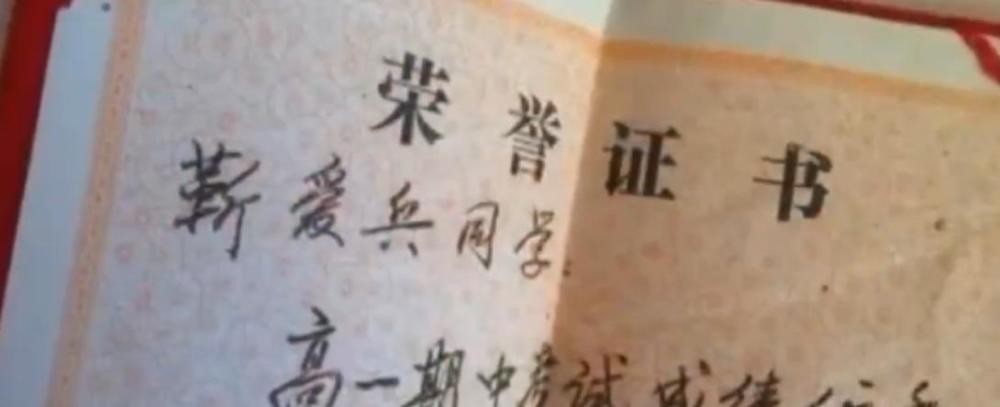 荣誉证书
靳爱兵同学:
高一期中考试成绩优秀